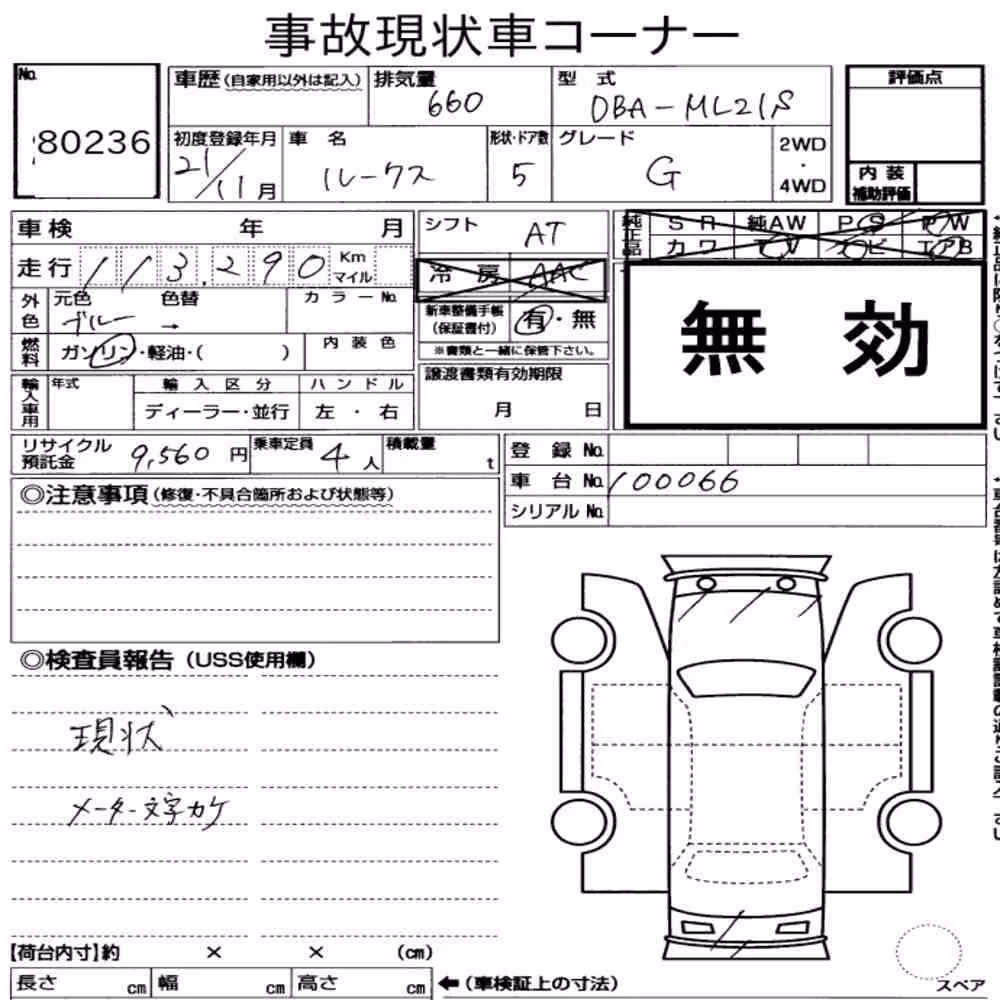 事故現状車コーナー
No. 80236
車歴(自家用以外は記入) 排気量 660 型 式 DBA-ML21S
初度登録年月 21/11月 車 名 ルークス 形状・ドア数 5 グレード G 2WD・4WD
評価点
内装補助評価
車検 年 月
走行 113,290 Km マイル
外色 元色 ブルー 色替 → カラーNo.
燃料 ガソリン・軽油・( ) 内装色
輸入車用 年式 輸入区分 ハンドル
ディーラー・並行 左・右
シフト AT
冷房 AAC
新車整備手帳(保証書付) 有・無
※書類と一緒に保管下さい。
譲渡書類有効期限
月 日
純正品 SR 純AW PS PW
カワ TV ナビ
無効
リサイクル預託金 9,560円 乗車定員 4人 積載量 t
登録No.
車台No. 100066
シリアルNo.
◎注意事項(修復・不具合箇所および状態等)
◎検査員報告(USS使用欄)
現状
メーター文字カケ
【荷台内寸】約 × × (cm)
長さ cm 幅 cm 高さ cm ←(車検証上の寸法)
スペア